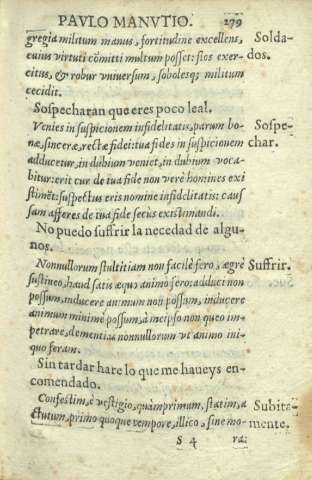 PAVLO MANVTIO. 279
gregia militum manus, fortitudine excellens, Solda-
cuius virtuti cōmitti multum posset: flos exer- dos.
citus, & robur vniuersum, sobolesq; militum
cecidit.
Sospecharan que eres poco leal.
Venies in suspicionem infidelitatis, parum bo- Sospe-
næ, sinceræ, rectæ fidei: tua fides in suspicionem char.
adducetur, in dubium veniet, in dubium voca-
bitur: erit cur de tua fide non verè homines exi
stiment: suspectus eris nomine infidelitatis: caus
sam afferes de tua fide secus existimandi.
No puedo suffrir la necedad de algu-
nos.
Nonnullorum stultitiam non facilè fero, ægrè Suffrir.
sustineo, haud satis æquo animo fero: adduci non
possum, inducere animum non possum, inducere
animum minimè possum, à meipso non queo im-
petrare, dementiam nonnullorum vt animo ini-
quo feram.
Sin tardar hare lo que me haueys en-
comendado.
Confestim, è vestigio, quàm primum, statim, a Subita-
ctutum, primo quoque tempore, illico, sine mo- mente.
S 4 ra: